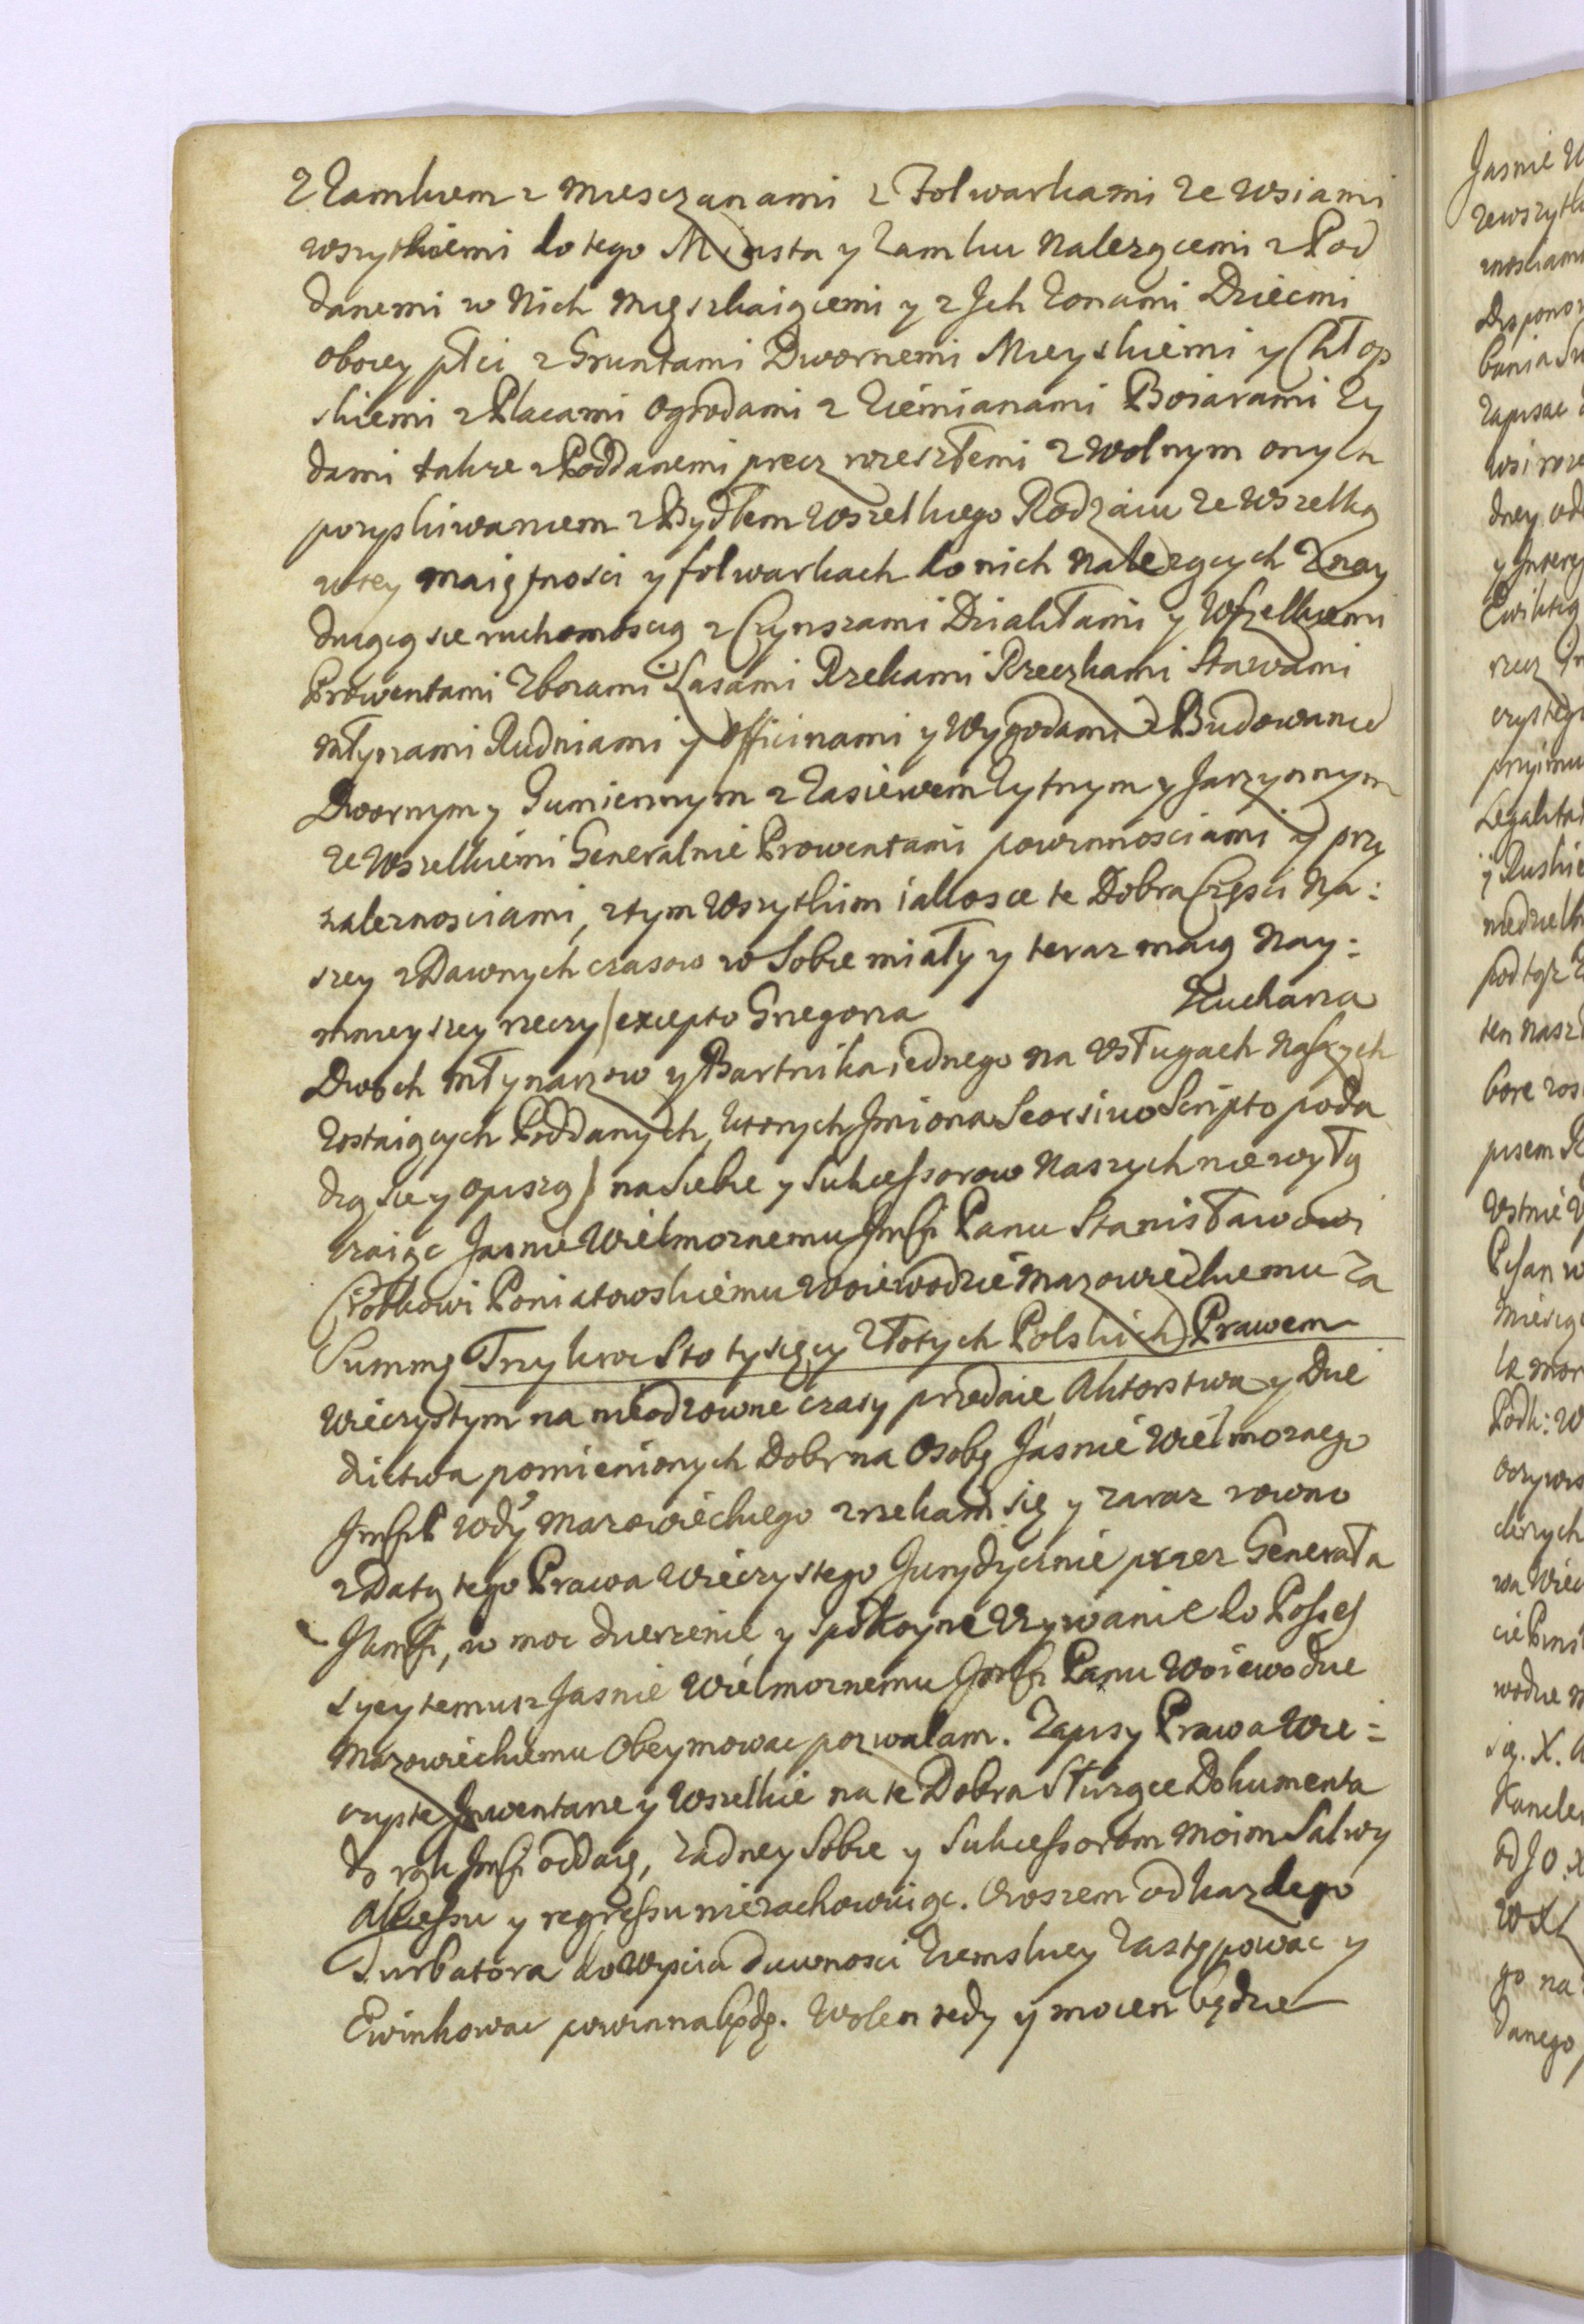 z Zamkiem z Miesczanami z Folwarkami ze wsiami
wszytkiemi do tego Miasta y Zamku Nalezącemi z Pod
danemi w Nich mięszkaiącemi y z Jch Zonami Dziecmi
oboiey płci z Gruntami Dwornemi Mieyskiemi y Chłop
skiemi z Placami Ogrodami z Ziemianami Boiarami Zy
dami takze z Poddanemi precz rzeszłemi z wolnym onych
pozyskiwaniem z Bydłem wszelkiego Rodzaiu ze wszelką
w tey maiętnosci y folwarkach do nich Nalezących Znay
duiącą sie ruchomoscią z Czynszami Dziakłami y Wszelkiemi
Prowentami Zborami Lasami Rzekami Rzeczkami Stawami
młynami Rudniami y Officinami y Wygodami z Budowanie
Dwornym y Gumiennym z Zasiewem Zytnym y Jarzynnym
ze Wszelkiemi Generalnie Prowentami powinnosciami y przy
nalernosciami, z tym Wszytkim iakosce te Dobra Części Na:
szey z Dawnych czasow w Sobie miały y teraz maią Nay:
mnieyszey rzeczy /excepto Gregorza Kucharza
Dwoch młynarzow y Bartnika iednego na Vsługach Naszych
Zostaiących Poddanych, ktorych Jmiona Seorsiuo Scripto poda
dzą sie y opiszą/ na Siebie y Sukcessorow Naszych nie wyłą
czaiąc Jasnie Wielmoznemu Jmści Panu Stanisławowi
Ciołkowi Poniatowskiemu Woiewodzie Mazowieckiemu Za
Summę Trzykroc Sto tysięcy Złotych Polskich Prawem
Wieczystym na nieodzowne czasy przedaie Aktorstwa y Dzie
dzictwa pomienionych Dobr na Osobę Jasnie Wielmoznego
JmśP. Wdy Mazowieckiego zrzekam się y zaraz rowno
z Datą tego Prawa Wieczystego Jurydycznie przez Generała
JKmści, w moc dzierzenie y spokoyne Vzywanie do Posses
syey temusz Jasnie Wielmoznemu Jmści Panu Woiewodzie
Mazowieckiemu Obeymowac pozwalam. Zapisy Prawa Wie:
czyste Jnwentarze y Wszelkie na te Dobra Słuzące Dokumenta
do rąk Jmści oddaię, Zadney Sobie y Sukcessorom moim Salwy
Akcessu y regressu niezachowuiąc. Owszem od kazdego
Turbatora do Wyscia dawnosci Ziemskiey Zastępowac y
Ewinkowac powinna będę. Wolen tedy y mocen będzie